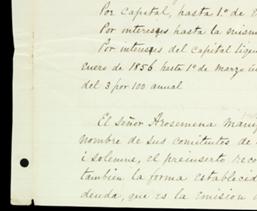 Por capital, hasta 1.º de
Por intereses hasta la misma
Por intereses del capital liqui
enero de 1856 hasta 1º de Marzo
del 3 por 100 anual
El Señor Arosemena mani
nombre de sus comitentes de
i solemne, el preinserto reco
tambien la forma establecid
deuda, que es la emision